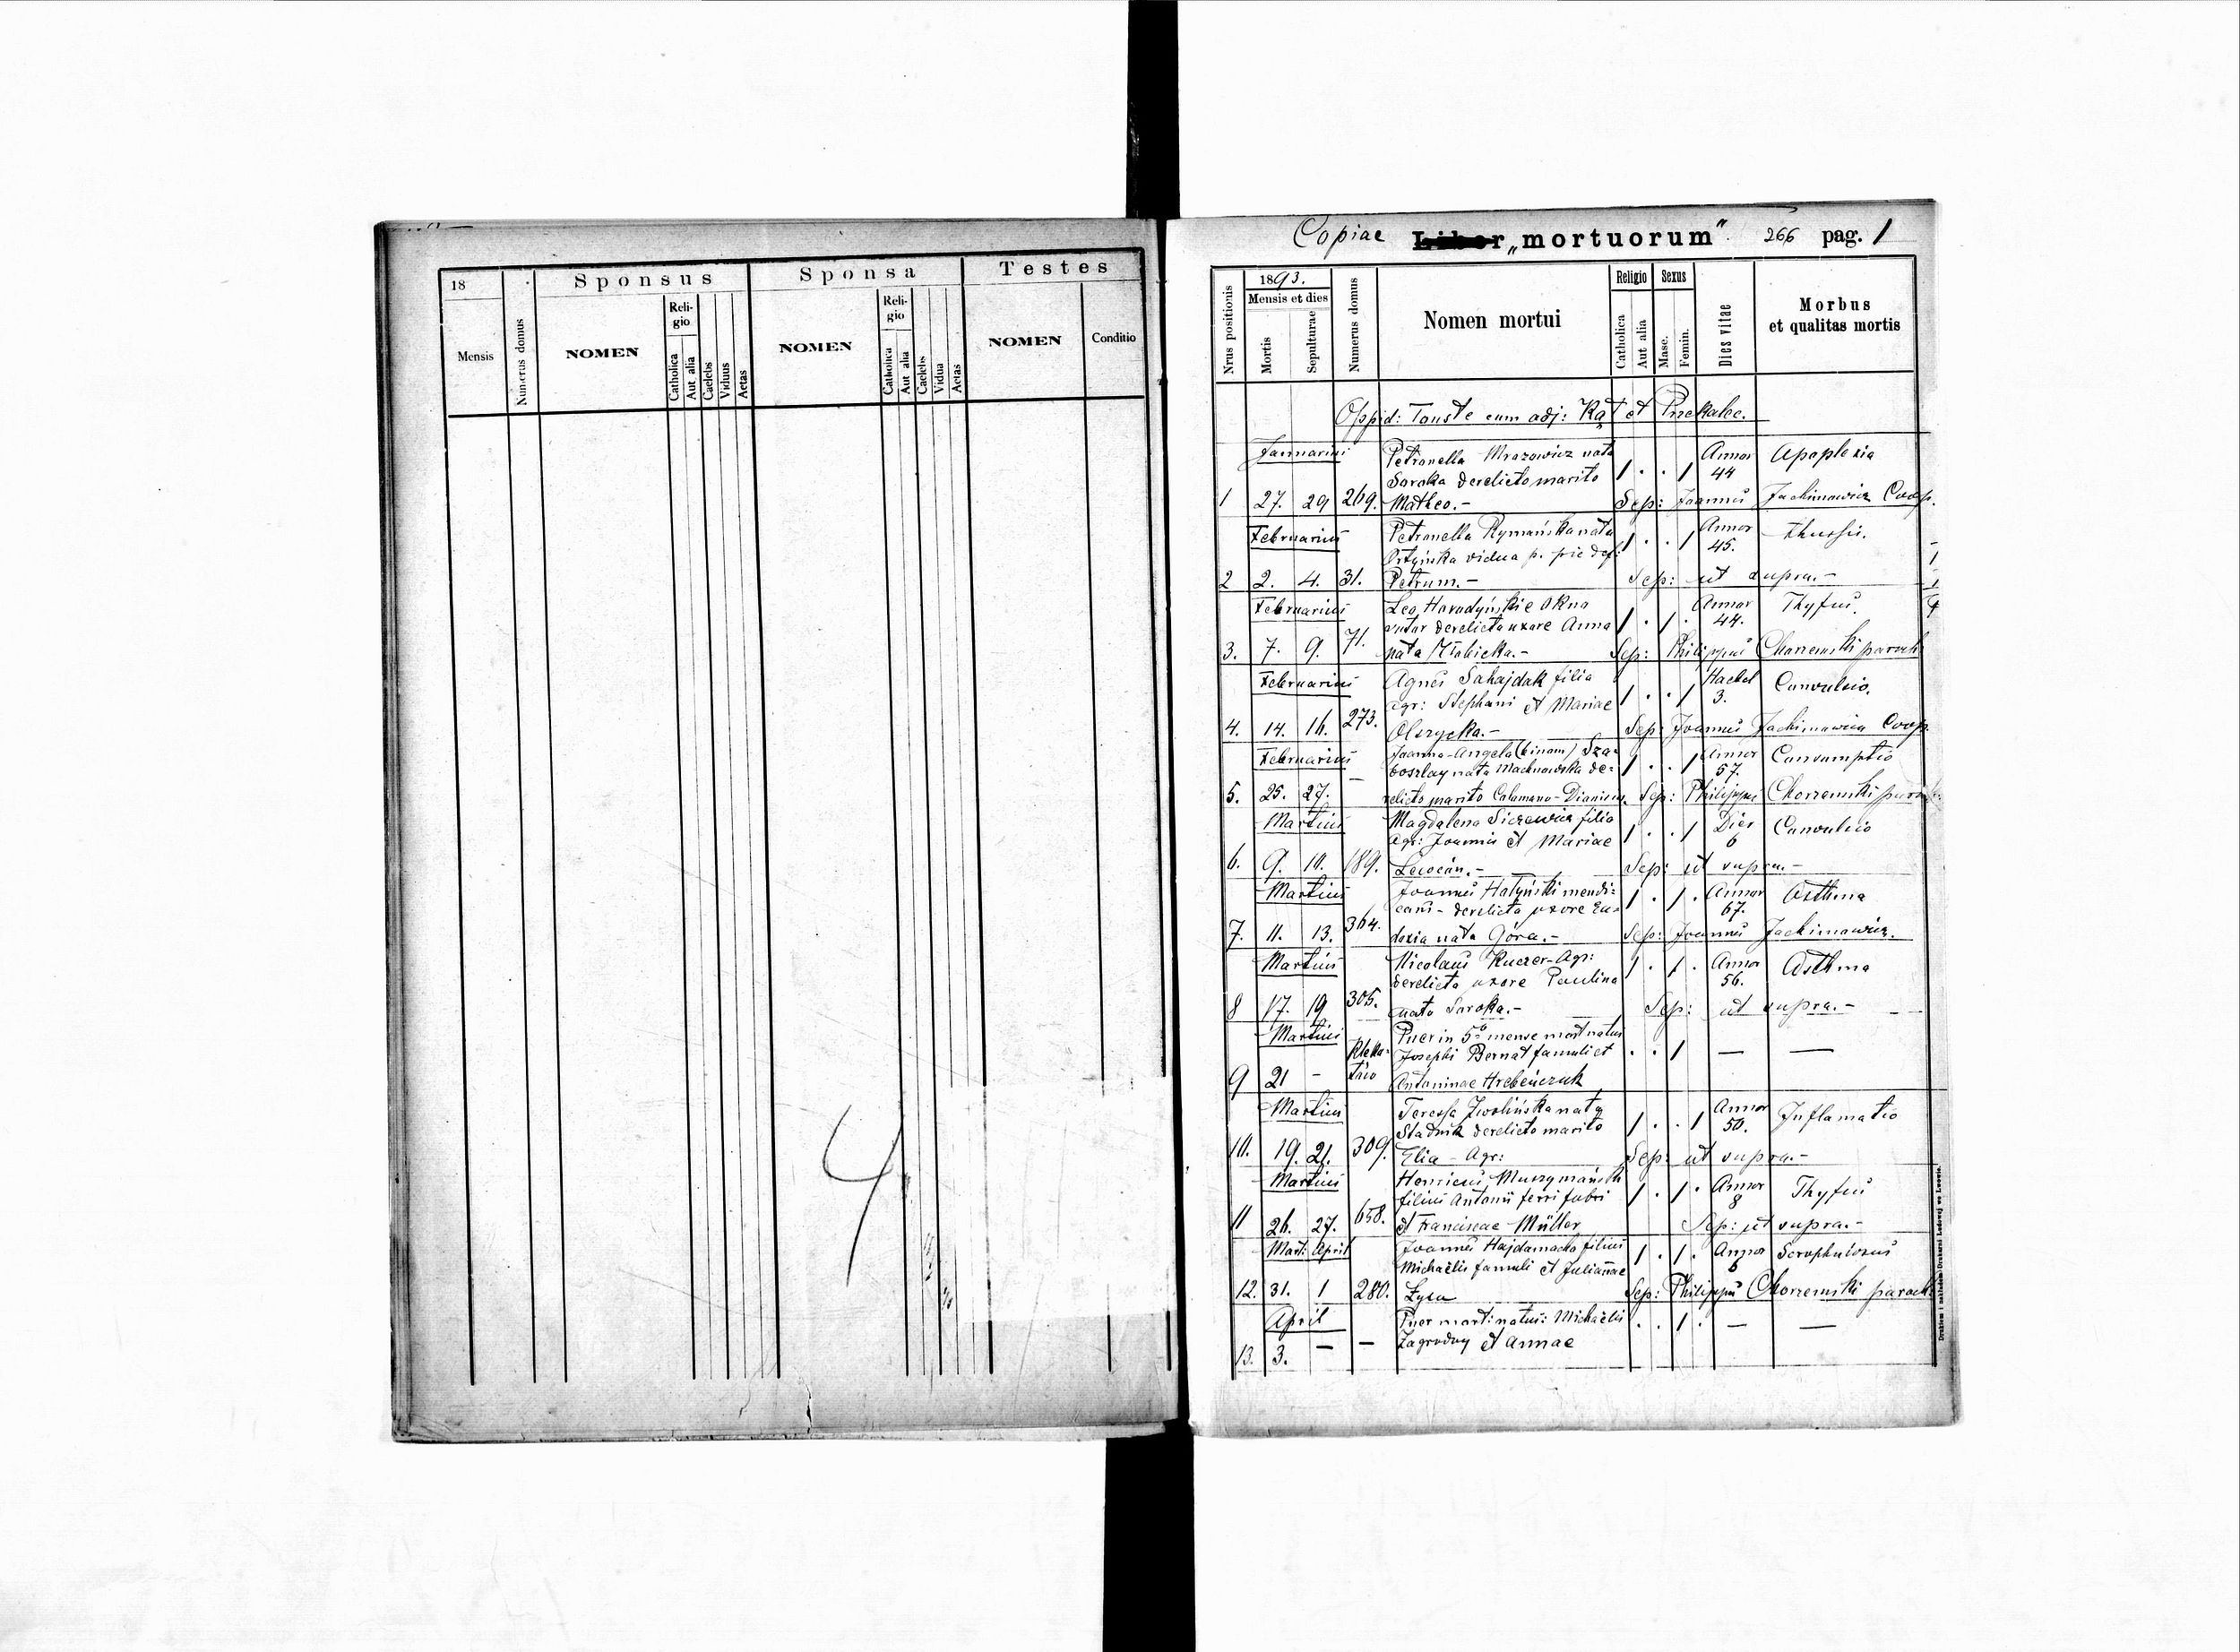 18
Mensis
Numerus domus
Sponsus
NOMEN
Reli-
gio
Catholica
Aut alia
Caelebs
Viduus
Aetas
Sponsa
NOMEN
Reli-
gio
Catholica
Aut alia
Caelebs
Vidua
Aetas
Testes
NOMEN
Conditio
4
Copiae Liber „mortuorum“ 266 pag. 1
Nrus positionis
1893.
Mensis et dies
Mortis
Sepulturae
Numerus domus
Nomen mortui
Religio
Catholica
Aut alia
Sexus
Masc.
Femin.
Dies vitae
Morbus
et qualitas mortis
Oppid: Touste cum adj: Kąt et Przekalec.
Januarius Petronella Mrazowicz nata Annor Apoplexia
Soroka derelicto marito 1 . . 1 44
1 27. 29 269. Matheo.- Sep: Joannes Jachimowicz Coop.
Februarius Petronella Rymańska nata Annor
Ortyńska vidua p. pie def: 1 . . 1 45.
2 2. 4. 31. Petrum.- Sep: ut supra.-
Februarius Leo Horodyński e Okno Annor Thyfus
derelicta uxore Anna 1 . 1 . 44.
3. 7. 9. 71. nata Sep: Philippus Chorzemski paroch
Februarius Agnes Sahajdak filia Hebd Convulsio.
agr: Stephani et Mariae 1 . . 1 3.
4. 14. 16. 273. Olszycka.- Sep: Joannes Jachimowicz Coop.
Februarius Joanna-Angela (binom) Sza- Annor Consumptio
boszlay nata Machnowska de- 1 . . 1 57.
5. 25. 27. - relicto marito Calomano-Dionisius. Sep: Philippus Chorzemski paroch
Martius Magdalena Siczewicz filia Dier Convulsio
agr: Joannis et Mariae 1 . . 1 6
6. 9. 10. 189. Sep: ut supra.-
Martius Joannes Hatyński mendi- Annor Asthma
cans - derelicta uxore Eu- 1 . 1 . 67.
7. 11. 13. 364. doxia nata Góra.- Sep: Joannes Jachimowicz.
Martius Nicolaus Kuczer - Agr: Annor Asthma
derelicta uxore Paulina 1 . 1 . 56.
8 17. 19 305. nata Soroka.- Sep: ut supra.-
Martius Puer in 5º mense mort natus
Josephi Bernat famuli et . . 1 — —
9 21 - Antoninae Hrebeńczuk
Martius Teressa Zwolińska nata Annor Inflamatio
Stadnik derelicto marito 1 . . 1 50.
10. 19. 21. 309. Elia - Agr: Sep: ut supra.-
Martius Henricus Muszymański Annor Thyfus
filius Antonii ferri fabri 1 . 1 . 8
11 26. 27. 658. et Franciscae Müller Sep: ut supra.-
Mart: April Joannes Hajdamacha filius Annor Scrophulosus
Michaëlis famuli et Juliannae 1 . 1 . 6
12. 31. 1 280. Łysa Sep: Philippus Chorzemski paroch
April Puer mort: natus: Michaëlis
Zagrodny et Annae . . 1 . — —
13. 3. — —
Drukiem i nakładem Drukarni Ludowej we Lwowie.